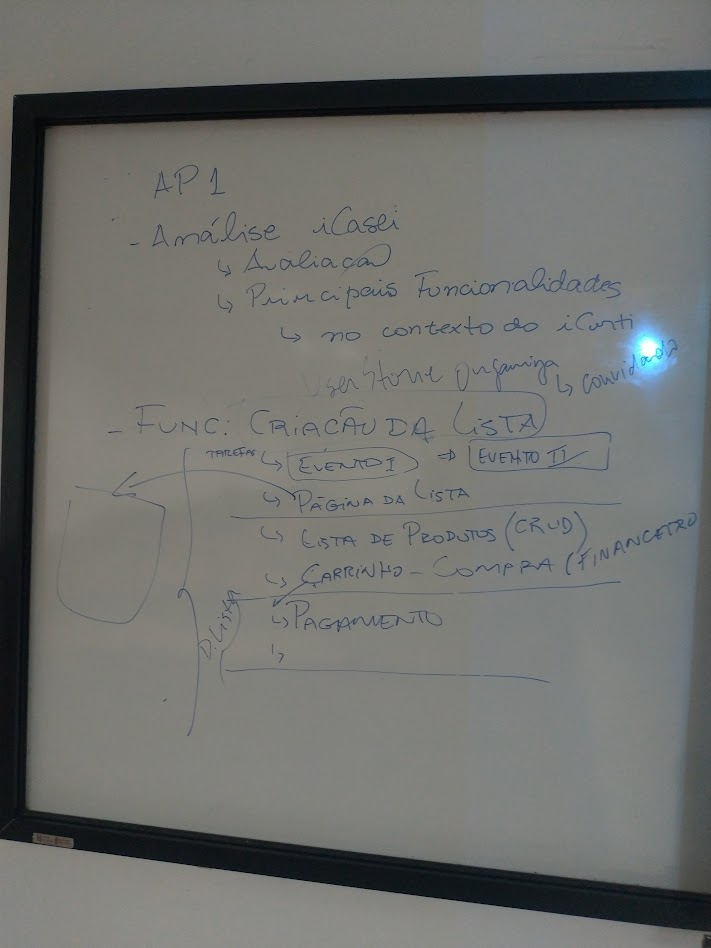 AP1
- Análise iCasei
↳ Avaliação
↳ Principais Funcionalidades
↳ no contexto do iCurti
User Storie Organiza ↳ convidado
- FUNC: CRIAÇÃO DA LISTA
TAREFAS ↳ EVENTO I ⇒ EVENTO II
↳ PÁGINA DA LISTA
↳ LISTA DE PRODUTOS (CRUD)
↳ CARRINHO - COMPRA (FINANCEIRO
↳ PAGAMENTO
↳